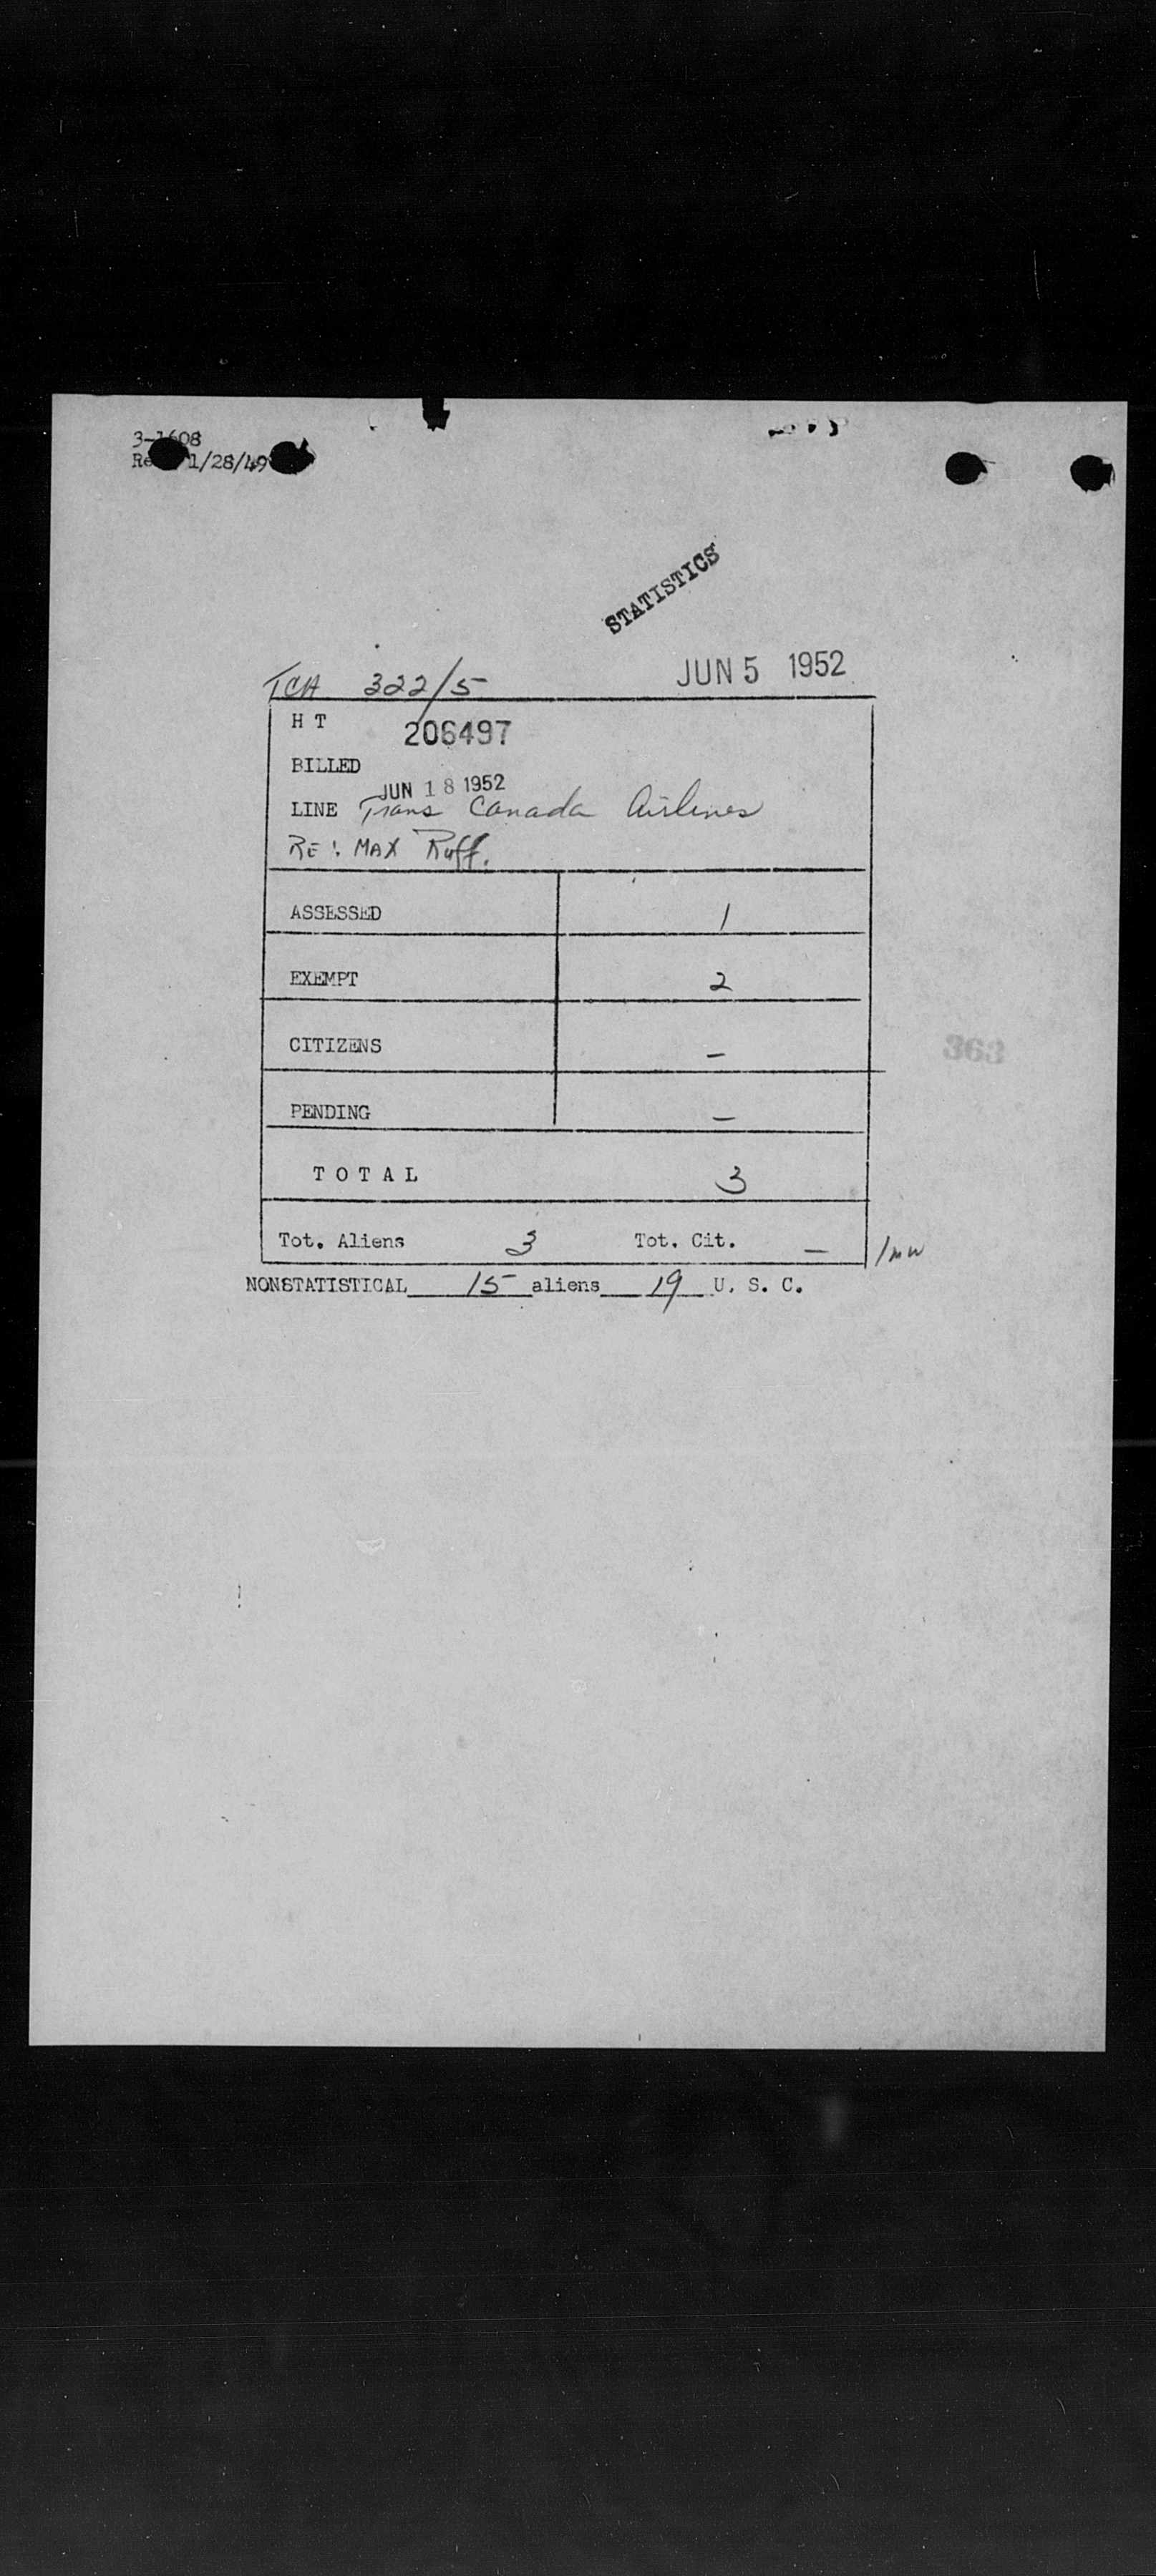 3-1608
1/28/49
STATISTICS
TCA 322/5 JUN 5 1952
H T 206497
BILLED
JUN 18 1952
LINE Trans Canada Airlines
RE: MAX Ruff.
ASSESSED 1
EXEMPT 2
CITIZENS –
363
PENDING –
T O T A L 3
Tot. Aliens 3 Tot. Cit. – /mw
NONSTATISTICAL 15 aliens 19 U. S. C.